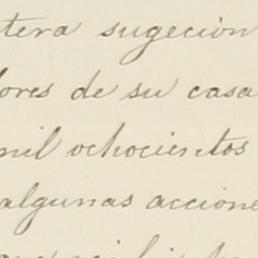 tera sugecion
ores de su casa
mil ochocientos
algunas accione